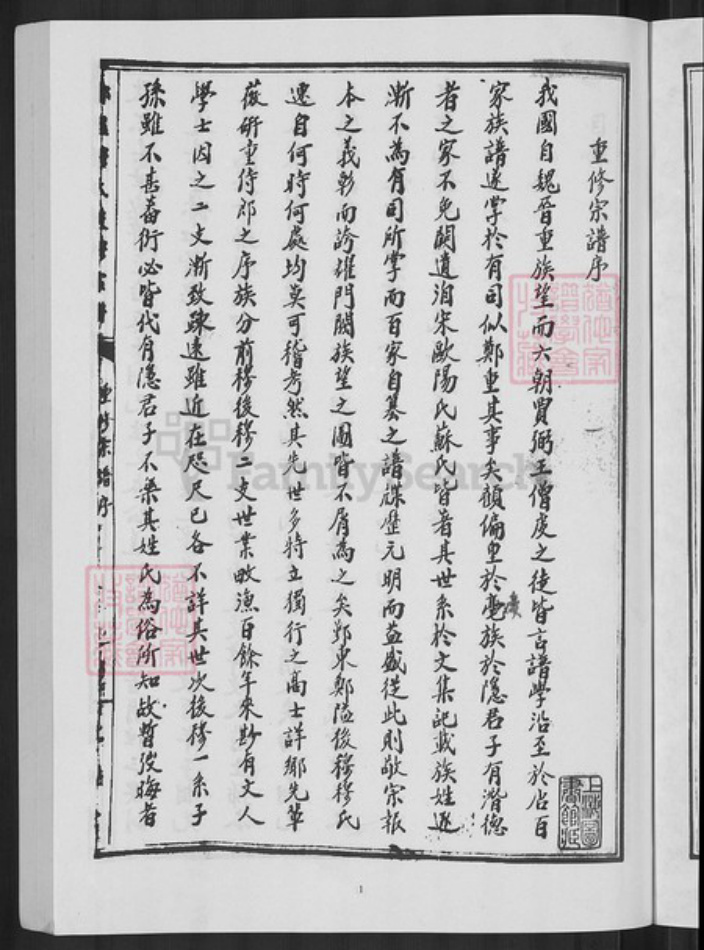 重修宗譜序
我國自魏晉重族望而六朝賈弼王僧虔之徒皆言譜學沿至於唐百
家族譜遂掌於有司似鄭重其事矣顧偏重於豪族於隱君子有潛德
者之家不免闕遺洎宋歐陽氏蘇氏皆著其世系於文集記載族姓遂
漸不為有司所掌而百家自纂之譜牒歷元明而益盛從此則敬宗報
本之義彰而誇雄門閥族望之圖皆不屑為之矣鄞東鄭隘後穆穆氏
遷自何時何處均莫可稽考然其先世多特立獨行之高士詳鄉先輩
薇研童侍郎之序族分前穆後穆二支世業畋漁百餘年來尠有文人
學士因之二支漸致疎遠雖近在咫尺已各不詳其世次後穆一系子
孫雖不甚蕃衍必皆代有隱君子不樂其姓氏為俗所知故暫從晦者
重修宗譜序
FamilySearch
上海圖書館藏
1